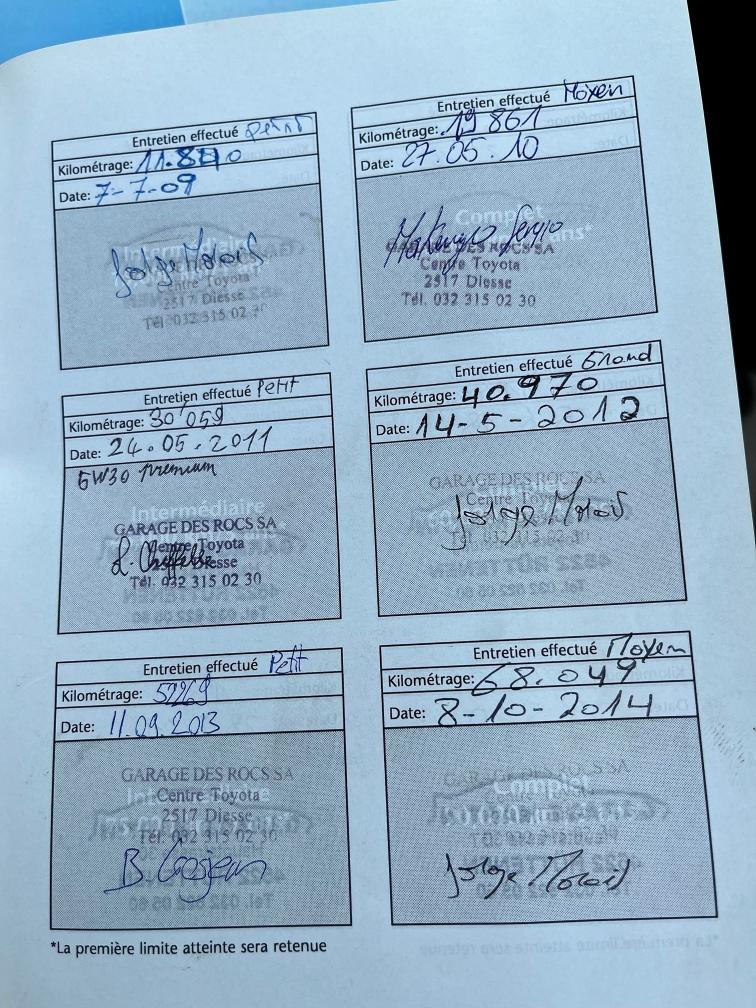 Entretien effectué Petit
Kilométrage: 11.840
Date: 7-7-09
Intermédiaire
GARAGE DES ROCS SA
Centre Toyota
2517 Diesse
Tél. 032 315 02
Entretien effectué Moyen
Kilométrage: 19 861
Date: 27.05.10
Complet
GARAGE DES ROCS SA
Centre Toyota
2517 Diesse
Tél. 032 315 02 30
Entretien effectué Petit
Kilométrage: 30'059
Date: 24.05.2011
5W30 Premium
Intermédiaire
GARAGE DES ROCS SA
Centre Toyota
2517 Diesse
Tél. 032 315 02 30
Entretien effectué Grand
Kilométrage: 40.970
Date: 14-5-2012
GARAGE DES ROCS SA
Centre Toyota
Tél. 032 315 02 30
Entretien effectué Petit
Kilométrage: 52269
Date: 11.09.2013
GARAGE DES ROCS SA
Centre Toyota
2517 Diesse
Tél. 032 315 02 30
Entretien effectué Moyen
Kilométrage: 68.049
Date: 8-10-2014
GARAGE DES ROCS SA
Complet
*La première limite atteinte sera retenue